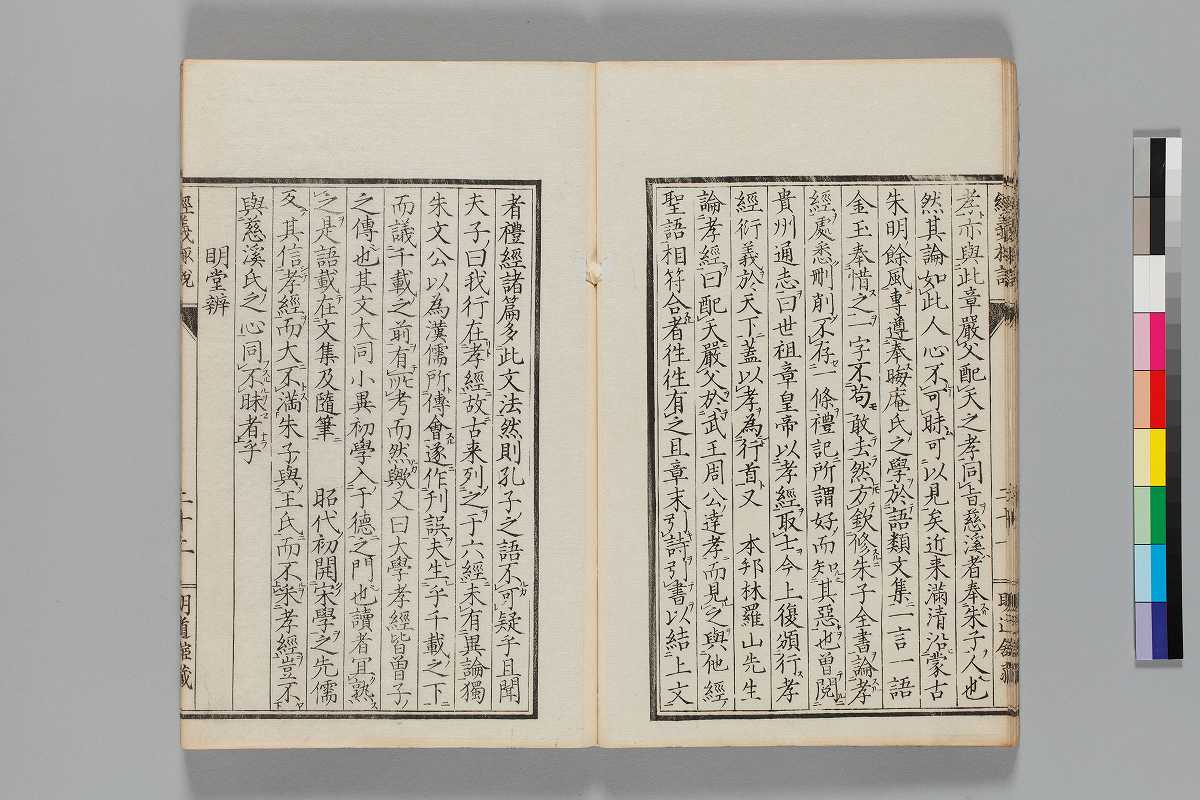 孝亦與此章嚴父配天之孝同旨慈溪者奉朱子人也
然其論如此人心不可時可以見矣近来滿清沿蒙古
朱明餘風專遵奉晦庵氏之學於語類文集一言一語
金玉奉惜之一字不苟敢去然方欽修朱子全書論孝
經處悉刪削不存一條禮記所謂好而知其惡也曾閲
貴州通志曰世祖章皇帝以孝經取士今上復頒行孝
經衍義於天下蓋以孝為行首又 本邦林羅山先生
論孝經曰配天嚴父於武王周公達孝而見之與他經
聖語相符合者徃徃有之且章末引詩引書以結上文
者禮經諸篇多此文法然則孔子之語不可疑乎且聞
夫子曰我行在孝經故古来列之于六經未有異論獨
朱文公以為漢儒所傳會遂作刋誤夫生乎千載之下
而議千載之前有所考而然歟又曰大學孝經皆曾子
之傳也其文大同小異初學入于德之門也讀者宜熟
之是語載在文集及隨筆 昭代初開宋學之先儒
亥其信孝經而大不滿朱子與王氏而不采孝經豈不
與慈溪氏之心同不昧者乎
明堂辨
二十二
明道館藏